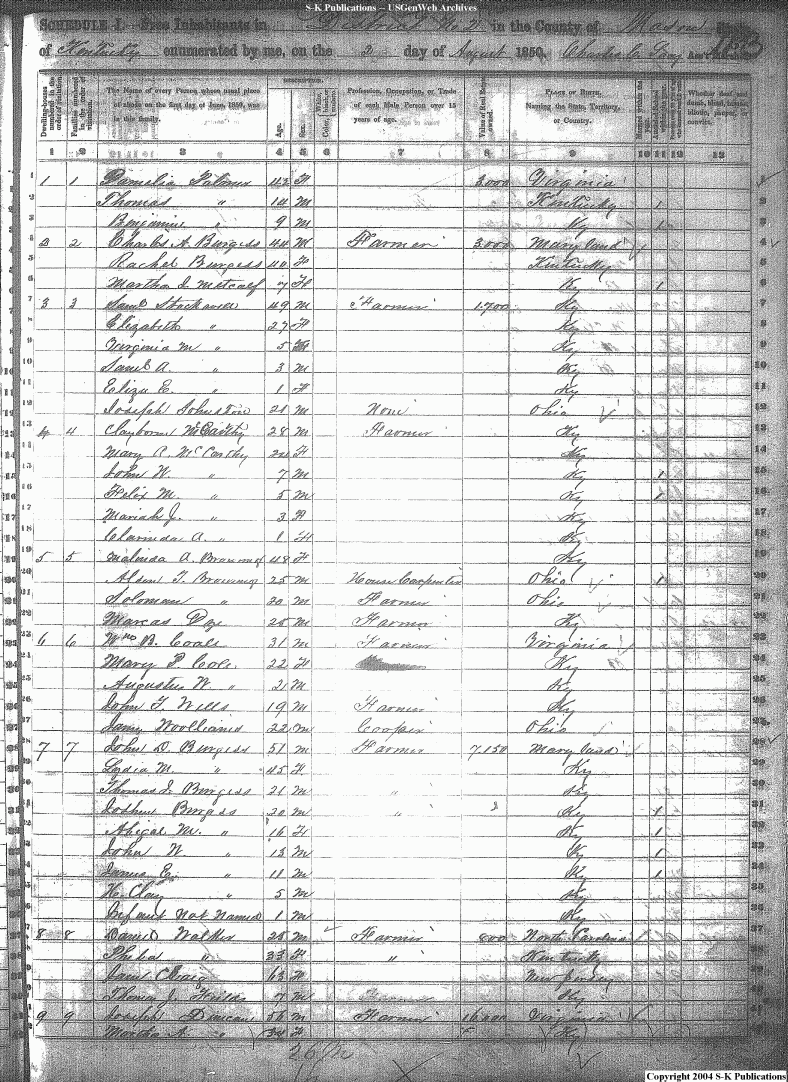 S-K Publications -- USGenWeb Archives
SCHEDULE I.—Free Inhabitants in District No 2 in the County of Mason State
of Kentucky enumerated by me, on the 2 day of August 1850. Charles Ass't Marshal
Dwelling-houses numbered in the order of visitation. Families numbered in the order of visitation. The Name of every Person whose usual place of abode on the first day of June, 1850, was in this family. DESCRIPTION. Age. Sex. Color, White, black, or mulatto. Profession, Occupation, or Trade of each Male Person over 15 years of age. Value of Real Estate owned. PLACE OF BIRTH. Naming the State, Territory, or Country. Married within the year. Whether deaf and dumb, blind, insane, idiotic, pauper, or convict.
1 2 3 4 5 6 7 8 9 10 11 12 13
1 1 1 Pamelia Palmer 42 F 3,000 Virginia 1
2 Thomas " 14 M Kentucky 1 2
3 Benjamin " 9 M Ky 1 3
4 2 2 Charles A. Burgess 44 M Farmer 3,000 Maryland 4
5 Rachel Burgess 40 F Kentucky 5
6 Martha J. Metcalf 7 F Ky 1 6
7 3 3 Saml 49 M Farmer 1,700 Ky 7
8 Elizabeth " 27 F Ky 8
9 Virginia M " 5 F Ky 9
10 Saml A. " 3 M Ky 10
11 Eliza E. " 1 F Ky 11
12 Joseph Johnston 21 M None Ohio 12
13 4 4 Clayborne McCarthy 28 M Farmer Ky 13
14 Mary A. McCarthy 24 F Ky 14
15 John W. " 7 M Ky 1 15
16 Felix M. " 5 M Ky 1 16
17 Mariah J. " 3 F Ky 17
18 Clarinda A. " 1 F Ky 18
19 5 5 Malinda A. Browning 48 F Ky 19
20 T. Browning 25 M House Carpenter Ohio 1 20
21 Soloman " 20 M Farmer Ohio 21
22 Marcas 25 M Farmer Ky 22
23 6 6 Wm B. Coals 31 M Farmer Virginia 23
24 Mary P. Cole 22 F Ky 24
25 Augustus W. " 2 M Ky 25
26 John T. Wills 19 M Farmer Ky 26
27 22 M Cooper Ohio 27
28 7 7 John D. Burgess 51 M Farmer 7,150 Maryland 28
29 Lydia M. " 45 F Ky 29
30 Thomas J. Burgess 21 M " Ky 30
31 Joshua Burgess 20 M " Ky 1 31
32 Abigal M. " 16 F Ky 1 32
33 John W. " 13 M Ky 1 33
34 James E. " 11 M Ky 1 34
35 H. Clay " 5 M Ky 35
36 Infant Not Named 1 M Ky 36
37 8 8 Daniel Walker 28 M Farmer 800 North Carolina 37
38 Pheba " 33 F " Kentucky 38
39 Jane Craig 63 F New Jersey 39
40 Thomas J. Fields 7 M Ky 40
41 9 9 Joseph Duncan 56 M Farmer 16,000 Virginia 41
42 Martha A. " 34 F Ky 42
26 M
Copyright 2004 S-K Publications